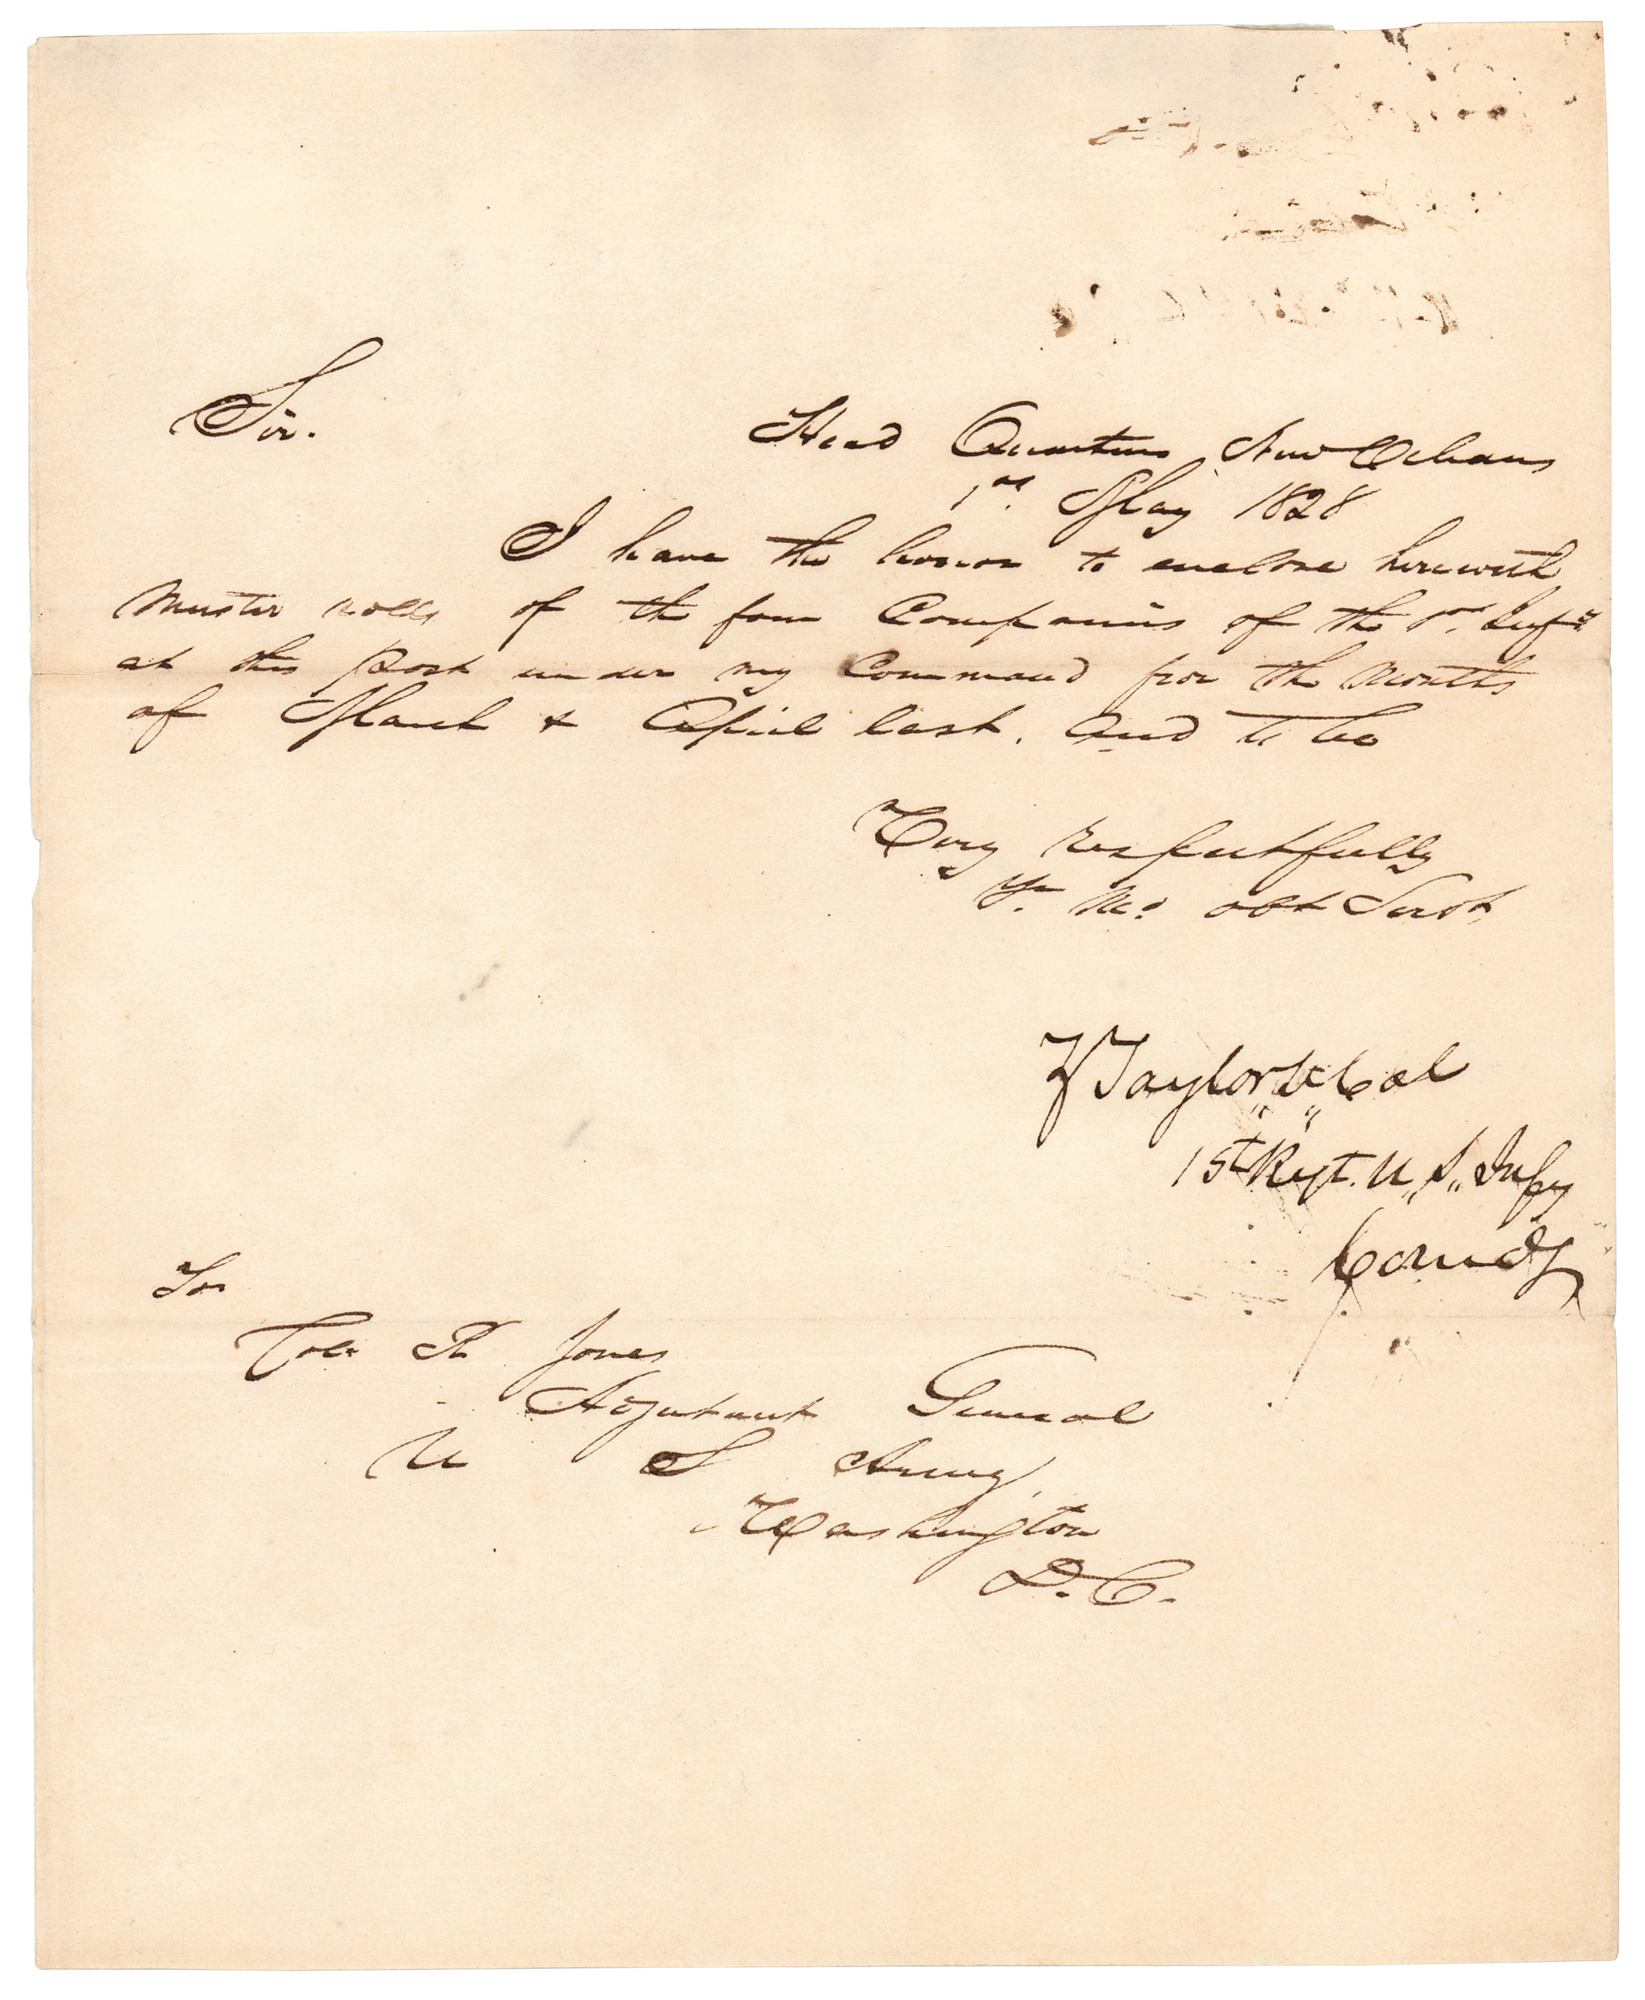 Sir.
Head Quarters New Orleans
1st May 1828
I have the honor to enclose herewith
Muster rolls of the four Companies of the 1st Infy
at this Post under my Command for the Months
of March & April last. And to be
Very respectfully
Yr. Mo. obt Servt
Z Taylor Lt Col
1st Regt. U,, S,, Infy
Comdg
To
Col R Jones
Adjutant General
U S Army
Washington
D. C.